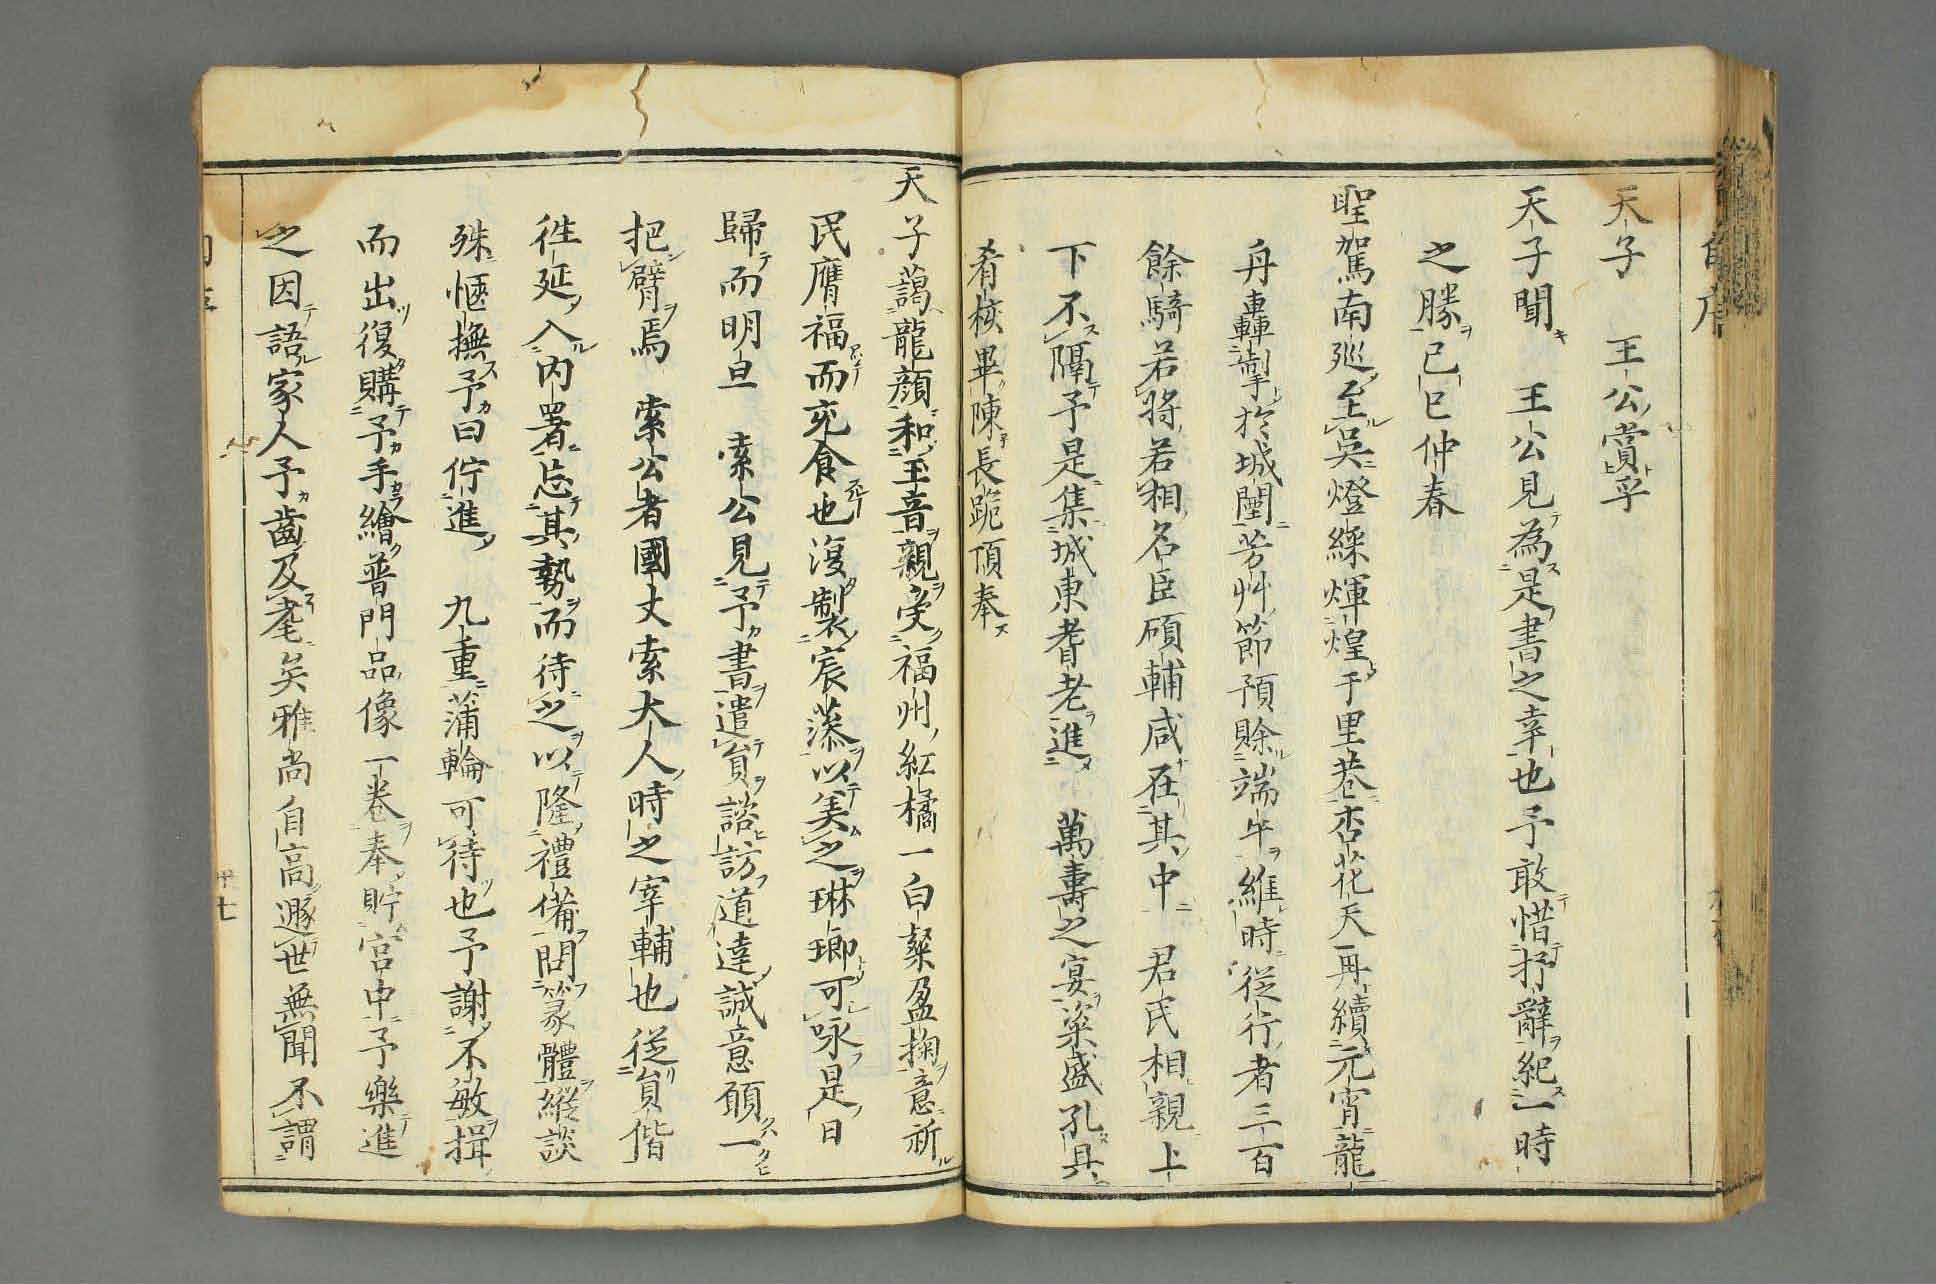 天子　王公賞孚
天子聞　王公見為是書之幸也予敢惜抒辭紀一時
之勝己巳仲春
聖駕南巡至吳燈綵煇煌于里巷杏花天再續元宵龍
舟轟掣於城闉芳艸節預賒端午維時從行者三百
餘騎若將若相名臣碩輔咸在其中　君民相親上
下不隔予是集城東耆老進　萬壽之宴粢盛孔具
肴核畢陳長跪頂奉
天子藹龍顏和玉音親受福州紅橘一白粲盈掬意祈
民膺福而充食也復製宸藻以美之琳瑯可咏是日
歸而明旦　索公見予書遣貟諮訪道達誠意願一
把臂焉　索公者國丈索大人時之宰輔也從貟偕
徃延入內署忘其勢而待之以隆禮備問篆體縱談
殊愜撫予曰佇進　九重蒲輪可待也予謝不敏揖
而出復購予手繪普門品像一卷奉貯宮中予樂進
之因語家人予齒及耄矣雅尚自高遯世無聞不謂